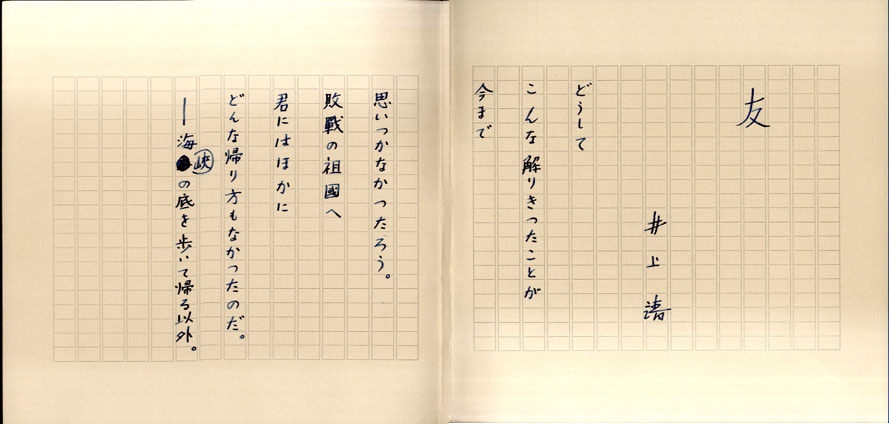 友
井上靖
どうして
こんな解りきつたことが
今まで
思いつかなかつたろう。
敗戰の祖國へ
君にはほかに
どんな帰り方もなかつたのだ。
―海峡の底を歩いて帰る以外。